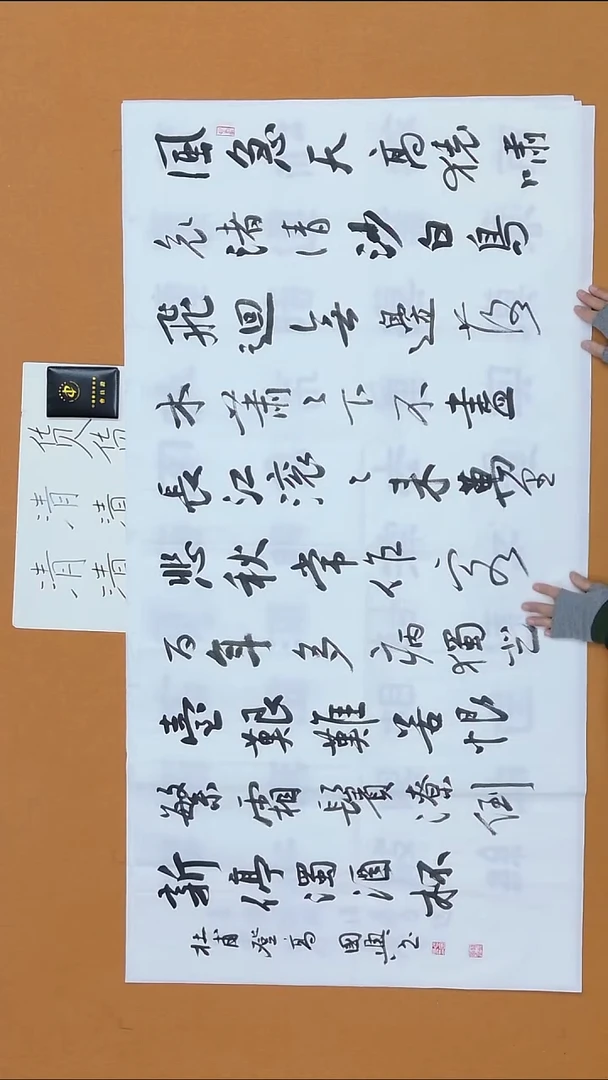 風急天高猿嘯
哀渚清沙白鳥
飛迴無邊落
木蕭〻下不盡
長江滚〻来萬里
悲秋常作客
百年多病獨登
臺艱難苦恨
繁霜鬢潦倒
新停濁酒杯
杜甫登高 國興书
货货
清清
清清